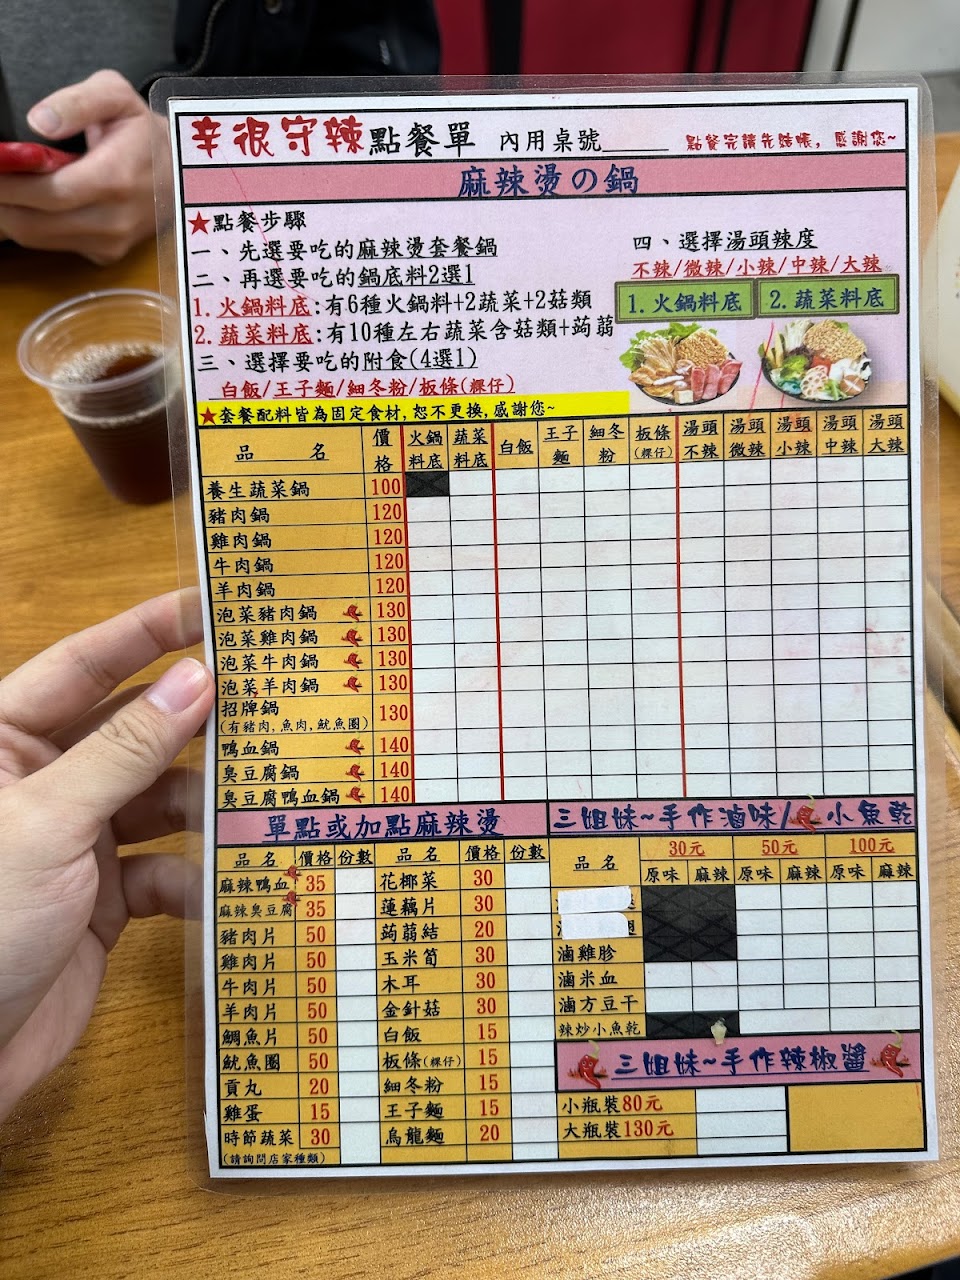 辛很守辣點餐單 內用桌號______ 點餐完請先結帳, 感謝您~
麻辣燙の鍋
★點餐步驟
一、先選要吃的麻辣燙套餐鍋
二、再選要吃的鍋底料2選1
1. 火鍋料底:有6種火鍋料+2蔬菜+2菇類
2. 蔬菜料底:有10種左右蔬菜含菇類+蒟蒻
三、選擇要吃的附食(4選1)
白飯/王子麵/細冬粉/板條(粿仔)
四、選擇湯頭辣度
不辣/微辣/小辣/中辣/大辣
1. 火鍋料底 2. 蔬菜料底
★套餐配料皆為固定食材, 恕不更換, 感謝您~
品 名 價格 火鍋料底 蔬菜料底 白飯 王子麵 細冬粉 板條(粿仔) 湯頭不辣 湯頭微辣 湯頭小辣 湯頭中辣 湯頭大辣
養生蔬菜鍋 100
豬肉鍋 120
雞肉鍋 120
牛肉鍋 120
羊肉鍋 120
泡菜豬肉鍋 130
泡菜雞肉鍋 130
泡菜牛肉鍋 130
泡菜羊肉鍋 130
招牌鍋 130
(有豬肉, 魚肉, 魷魚圈)
鴨血鍋 140
臭豆腐鍋 140
臭豆腐鴨血鍋 140
單點或加點麻辣燙
品 名 價格 份數 品 名 價格 份數
麻辣鴨血 35 花椰菜 30
麻辣臭豆腐 35 蓮藕片 30
豬肉片 50 蒟蒻結 20
雞肉片 50 玉米筍 30
牛肉片 50 木耳 30
羊肉片 50 金針菇 30
鯛魚片 50 白飯 15
魷魚圈 50 板條(粿仔) 15
貢丸 20 細冬粉 15
雞蛋 15 王子麵 15
時節蔬菜 30 烏龍麵 20
(請詢問店家種類)
三姐妹~手作滷味/小魚乾
品 名 30元 50元 100元
原味 麻辣 原味 麻辣 原味 麻辣
滷雞胗
滷米血
滷方豆干
辣炒小魚乾
三姐妹~手作辣椒醬
小瓶裝80元
大瓶裝130元